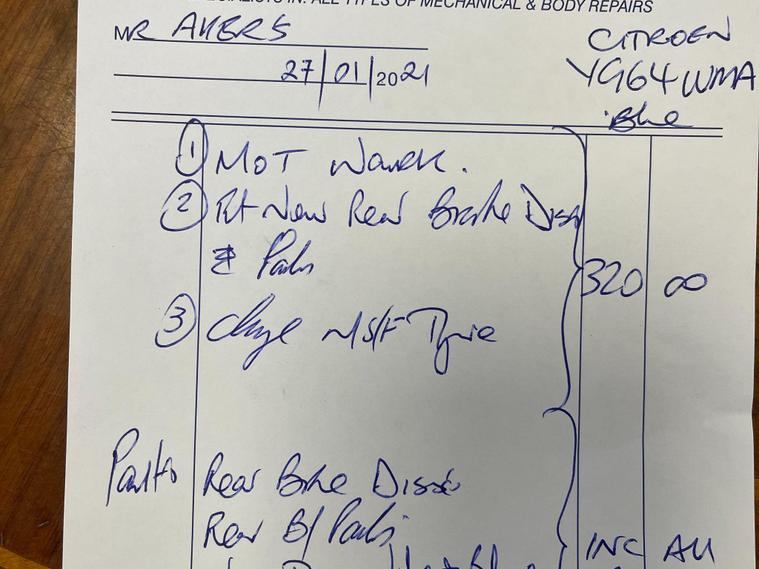 SPECIALISTS IN: ALL TYPES OF MECHANICAL & BODY REPAIRS
MR AKERS
CITROEN
27/01/2021
YG64WMA
Blue
① MOT Work.
② Fit New Rear Brake Discs
& Pads
320 00
③ Change N/S/F Tyre
Parts Rear Brake Discs
Rear B/Pads
INC All